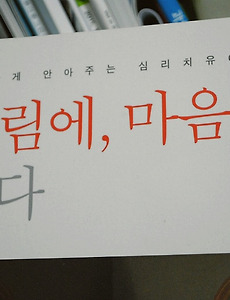 게 안아주는 심리치유
림에, 마음
다